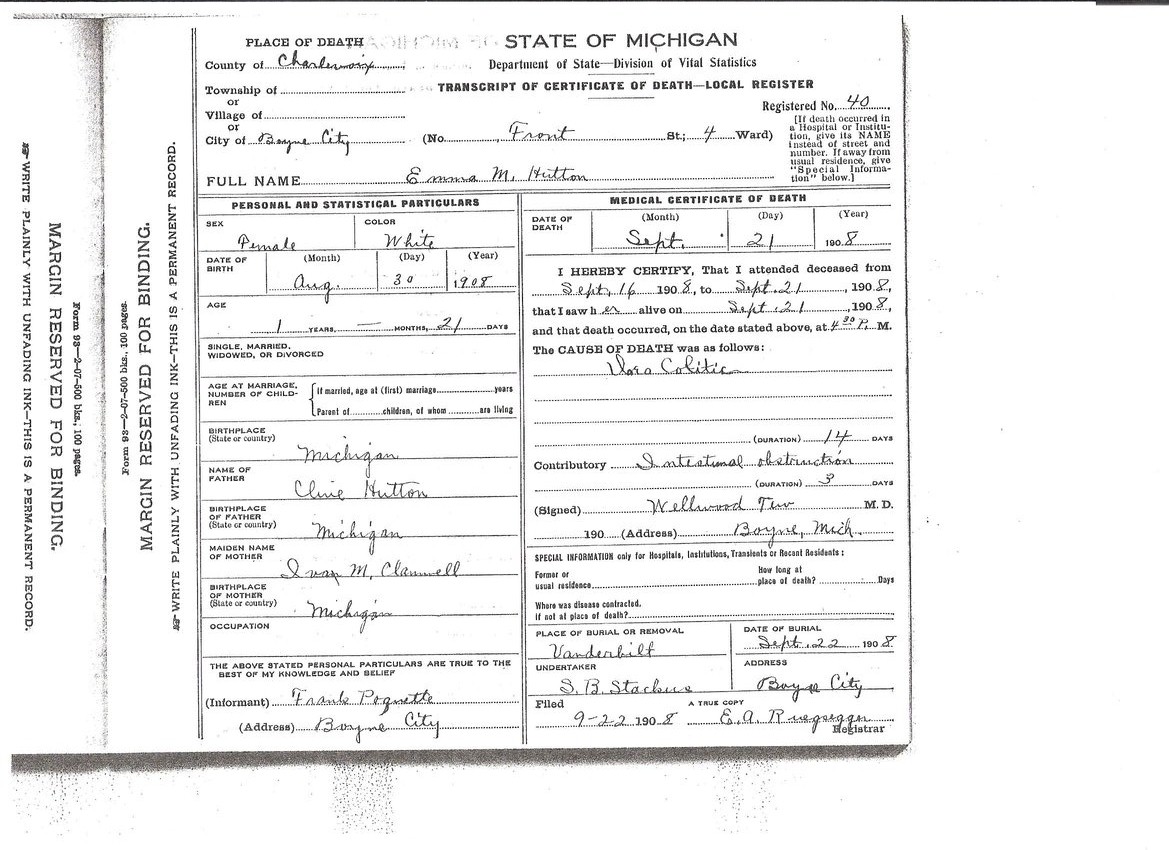 PLACE OF DEATH
STATE OF MICHIGAN
County of Charlevoix
Department of State—Division of Vital Statistics
Township of
TRANSCRIPT OF CERTIFICATE OF DEATH—LOCAL REGISTER
or
Village of
Registered No. 40
or
City of Boyne City (No. Front St.; 4 Ward)
[If death occurred in
a Hospital or Institu-
tion, give its NAME
instead of street and
number. If away from
usual residence, give
"Special Informa-
tion" below.]
FULL NAME Emma M. Hutton
PERSONAL AND STATISTICAL PARTICULARS
SEX
Female
COLOR
White
DATE OF
BIRTH
(Month) (Day) (Year)
Aug. 30 1908
AGE
1 YEARS, — MONTHS, 21 DAYS
SINGLE, MARRIED,
WIDOWED, OR DIVORCED
AGE AT MARRIAGE,
NUMBER OF CHILD-
REN
If married, age at (first) marriage years
Parent of children, of whom are living
BIRTHPLACE
(State or country)
Michigan
NAME OF
FATHER
Clive Hutton
BIRTHPLACE
OF FATHER
(State or country)
Michigan
MAIDEN NAME
OF MOTHER
M.
BIRTHPLACE
OF MOTHER
(State or country)
Michigan
OCCUPATION
THE ABOVE STATED PERSONAL PARTICULARS ARE TRUE TO THE
BEST OF MY KNOWLEDGE AND BELIEF
(Informant) Frank Poquette
(Address) Boyne City
MEDICAL CERTIFICATE OF DEATH
DATE OF
DEATH
(Month) (Day) (Year)
Sept. 21 1908
I HEREBY CERTIFY, That I attended deceased from
Sept. 16 1908, to Sept. 21, 1908,
that I saw her alive on Sept. 21, 1908,
and that death occurred, on the date stated above, at 4 30 P. M.
The CAUSE OF DEATH was as follows:
Colitis
(DURATION) 14 DAYS
Contributory Intestinal obstruction
(DURATION) 3 DAYS
(Signed) Wellwood M. D.
190 (Address) Boyne, Mich.
SPECIAL INFORMATION only for Hospitals, Institutions, Transients or Recent Residents:
Former or
usual residence
How long at
place of death? Days
Where was disease contracted,
if not at place of death?
PLACE OF BURIAL OR REMOVAL
Vanderbilt
DATE OF BURIAL
Sept. 22 1908
UNDERTAKER
S. B. Stackus
ADDRESS
Boyne City
Filed
9-22 1908
A TRUE COPY
E. A. Ruegsegger
Registrar
WRITE PLAINLY WITH UNFADING INK—THIS IS A PERMANENT RECORD.
MARGIN RESERVED FOR BINDING.
Form 93—2-07-500 bks., 100 pages.
Form 93—2-07-500 bks., 100 pages.
MARGIN RESERVED FOR BINDING.
WRITE PLAINLY WITH UNFADING INK—THIS IS A PERMANENT RECORD.